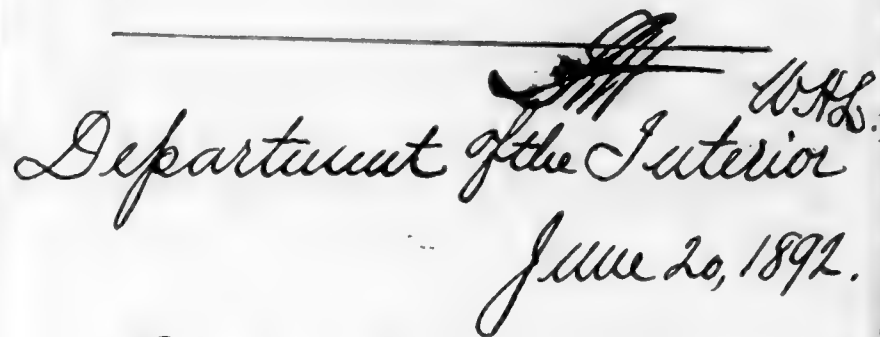 W.H.L.
Department of the Interior
June 20, 1892.